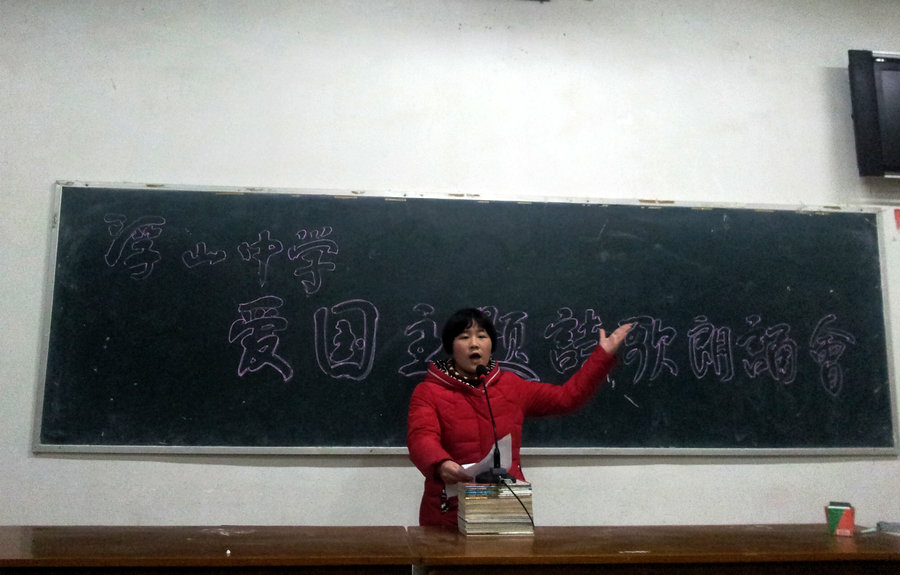 浮山中学
爱国主题詩歌朗誦會